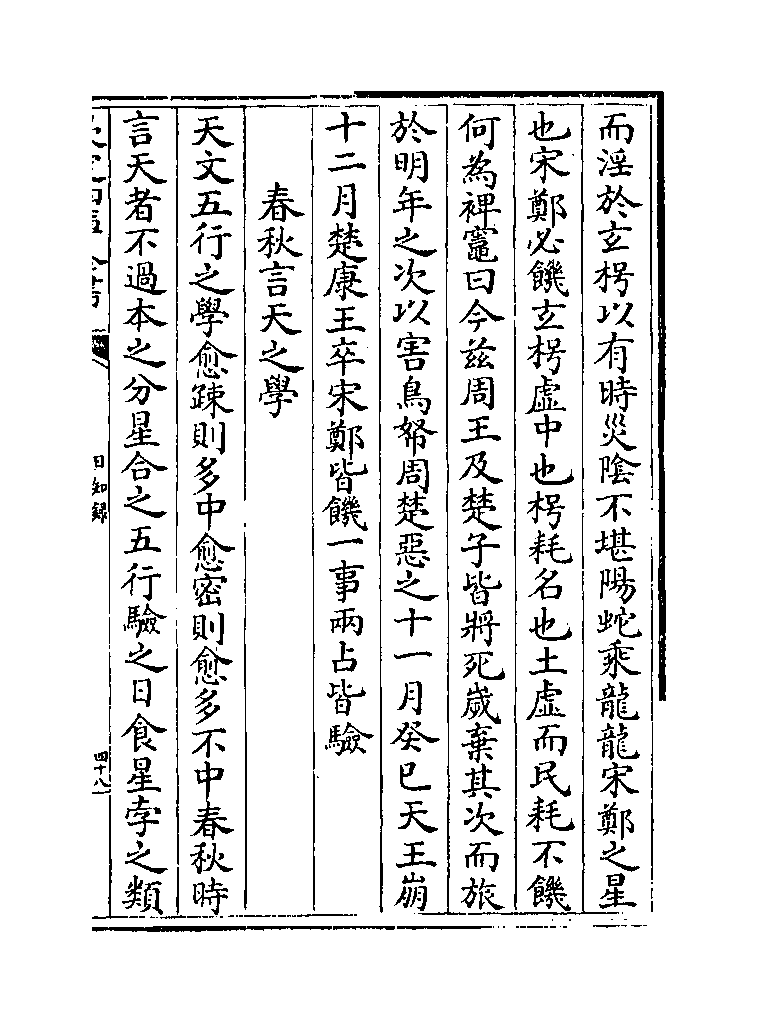 而淫於玄枵以有時災陰不堪陽蛇乘龍龍宋鄭之星
也宋鄭必饑玄枵虛中也枵耗名也土虛而民耗不饑
何為裨竈曰今兹周王及楚子皆將死歲棄其次而旅
於明年之次以害鳥帑周楚惡之十一月癸巳天王崩
十二月楚康王卒宋鄭皆饑一事兩占皆驗
春秋言天之學
天文五行之學愈疎則多中愈密則愈多不中春秋時
言天者不過本之分星合之五行驗之日食星孛之類
日知録
四十八